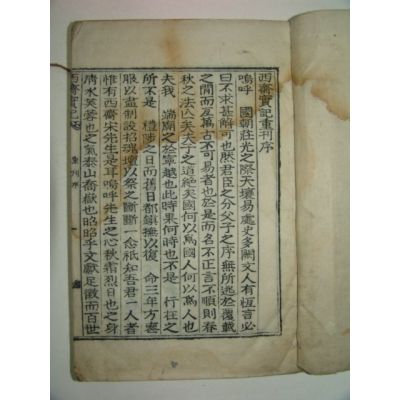 西齋實記重刊序
嗚呼 國朝莊光之際天壤易處史多闕文人有恆言必
曰不求甚解可也然君臣之分父子之序無所逃於覆載
之間而亙萬古不可易者也於是而名不正言不順則春
秋之法亡矣夫子之道絶矣國何以爲國人何以爲人也
夫我 端廟之於寧越也此時果何時也不是 行在之
所不是 禮陟之日而舊日都鎭撫以復 命三年方喪
服以盡制設招魂壇以祭之斷斷一念祗知吾君一人者
惟有西齋宋先生是耳嗚呼先生之心秋霜烈日也之身
清水芙蓉也之氣泰山喬嶽也昭昭乎文獻足徵而百世
西齋實記 重刊序 一